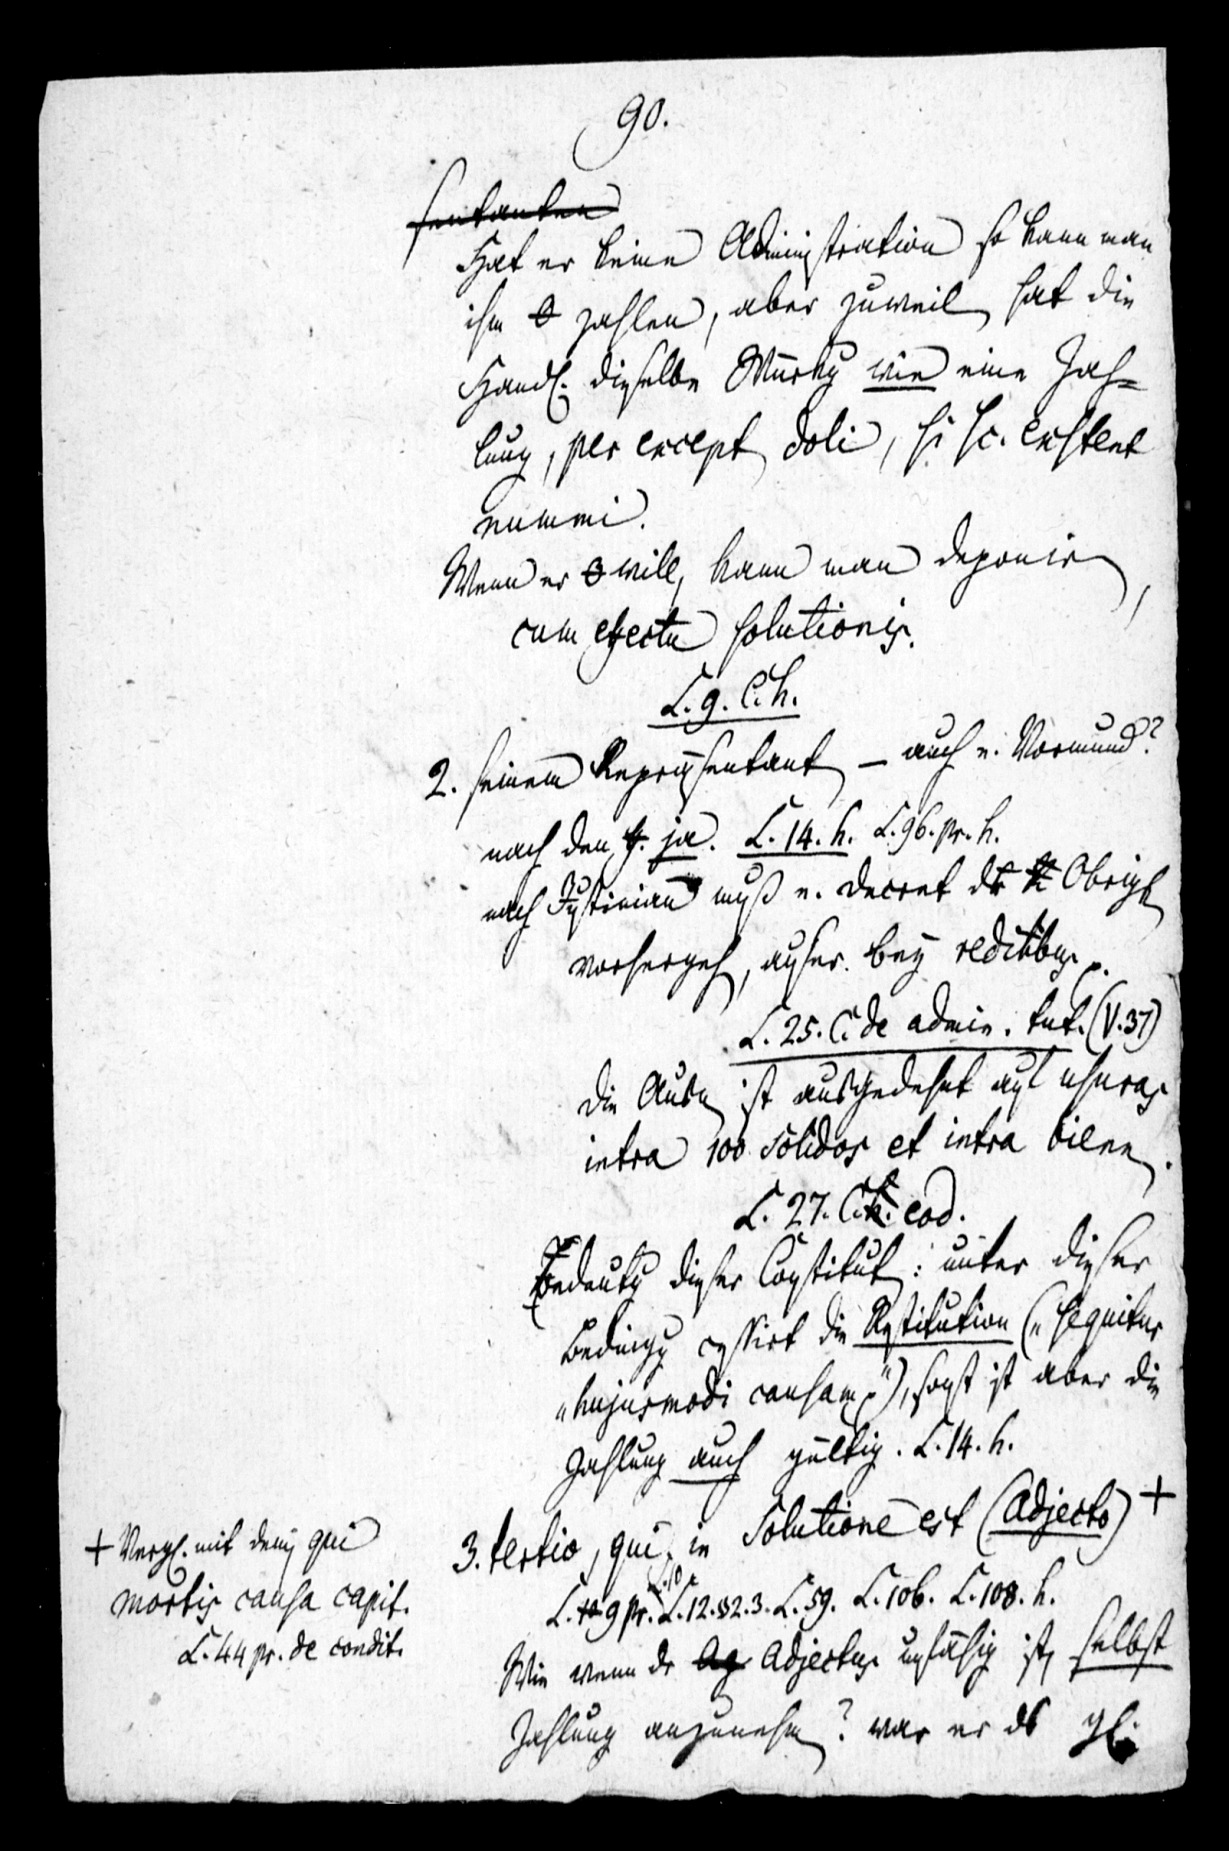 90.
sentanten
Hat er keine Administration so kann man
ihm θ zahlen, aber zuweil hat die
Handl. dieselbe Würkg wie eine Zah=
lung, per except doli, si sc. exstent
nummi.
Wenn er θ will, kann man deponir,
cum effectu solutionis.
L. 9. C. h.
2. seinem Repräsentant – auch e. Vormund?
nach den ja. L. 14. h. L. 96. pr. h.
nach Justinian muß e. Decret der Obrigk
vorhergeh, außer bey reditibus
L. 25. C. de admin. tut. (V. 37)
die Ausn ist ausgedehnt auf usuras
intra 100 solidos et intra bienn.
L. 27. C. h. eod.
Bedeutg dieser Constitut: unter dieser
Bedingg cessirt die Restitution („sequitur
„hujusmodi causam“), sonst ist aber die
Zahlung auch gültig. L. 14. h.
3. tertio, qui in solutione est (adjecto) +
L. 9 pr. L. 10. L. 12. §2. 3. L. 59. L. 106. L. 108. h.
Wie wenn der Adjectus unfähig ist, selbst
Zahlung anzunehm? war er ds gl.
+ Vergl. mit dem qui
mortis causa capit.
L. 44 pr. de condit.